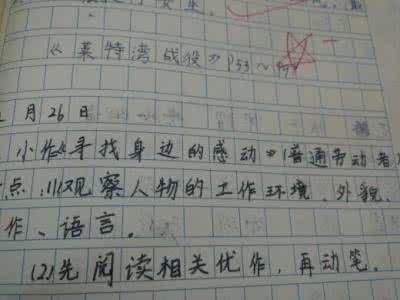 《莱特湾战役》P53~
月26日
小作《寻找身边的感动》(普通劳动者
点:(1)观察人物的工作环境、外貌、
作、语言。
(2)先阅读相关优作,再动笔。